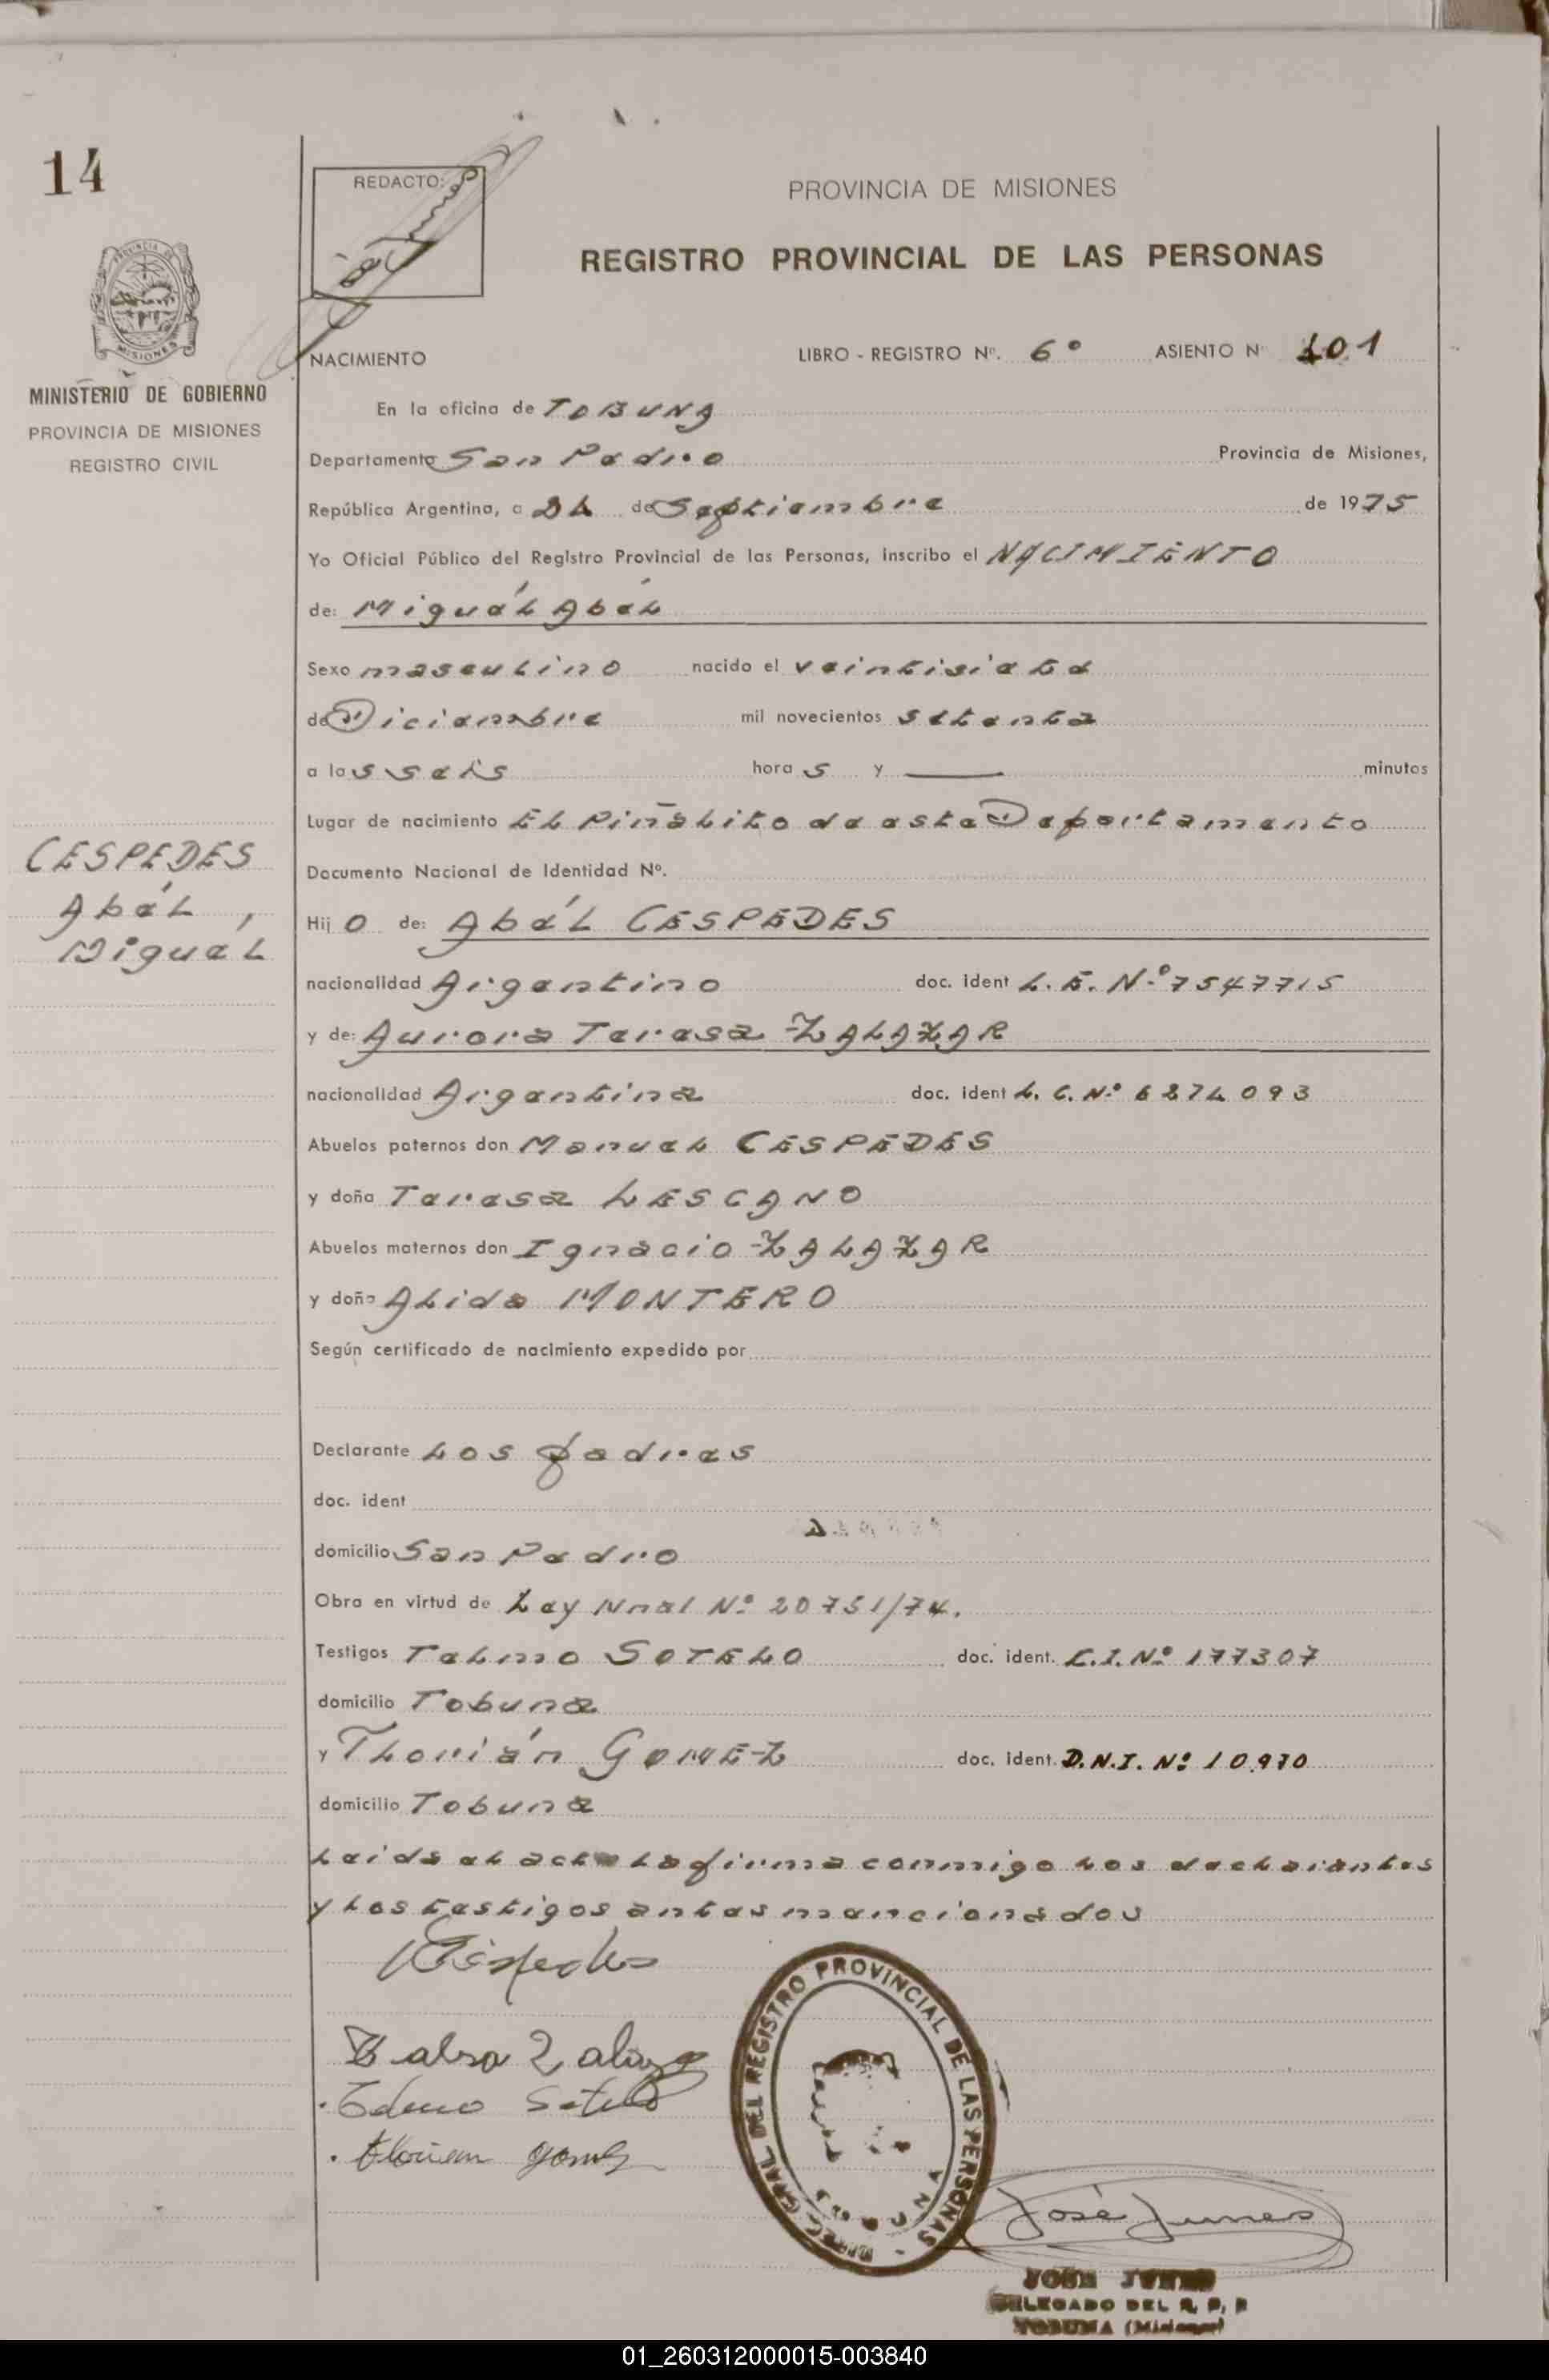 14
REDACTO:
PROVINCIA DE MISIONES
REGISTRO PROVINCIAL DE LAS PERSONAS
MISIONES
MINISTERIO DE GOBIERNO
PROVINCIA DE MISIONES
REGISTRO CIVIL
NACIMIENTO LIBRO - REGISTRO Nº. 6º ASIENTO Nº 101
En la oficina de TOBUNA
Departamento San Pedro Provincia de Misiones,
República Argentina, a 24 de Septiembre de 1975
Yo Oficial Público del Registro Provincial de las Personas, inscribo el NACIMIENTO
de: Miguél Abél
Sexo masculino nacido el veintisiete
de Diciembre mil novecientos setenta
a las seis horas y —— minutos
Lugar de nacimiento El Piñalito de este Departamento
Documento Nacional de Identidad Nº.
CESPEDES
Abél,
Miguél
Hijo de: Abél CESPEDES
nacionalidad Argentino doc. ident L.E. Nº 7547715
y de: Aurora Teresa ZALAZAR
nacionalidad Argentina doc. ident L.C. Nº 6274093
Abuelos paternos don Manuel CESPEDES
y doña Teresa LESCANO
Abuelos maternos don Ignacio ZALAZAR
y doña Alida MONTERO
Según certificado de nacimiento expedido por
Declarante Los padres
doc. ident
domicilio San Pedro
Obra en virtud de Ley Nnal Nº 20751/74.
Testigos Telmo SOTELO doc. ident. C.I. Nº 177307
domicilio Tobuna
y Florián GOMEZ doc. ident. D.N.I. Nº 10.970
domicilio Tobuna
Leida el acta la firma conmigo los declarantes
y los testigos antes mencionados
Céspedes
Zalazar
Telmo Sotelo
Florian Gomez
DIREC. GRAL. DEL REGISTRO PROVINCIAL DE LAS PERSONAS
José Junes
JOSE JUNES
DELEGADO DEL R. P. P
TOBUNA (Misiones)
01_260312000015-003840